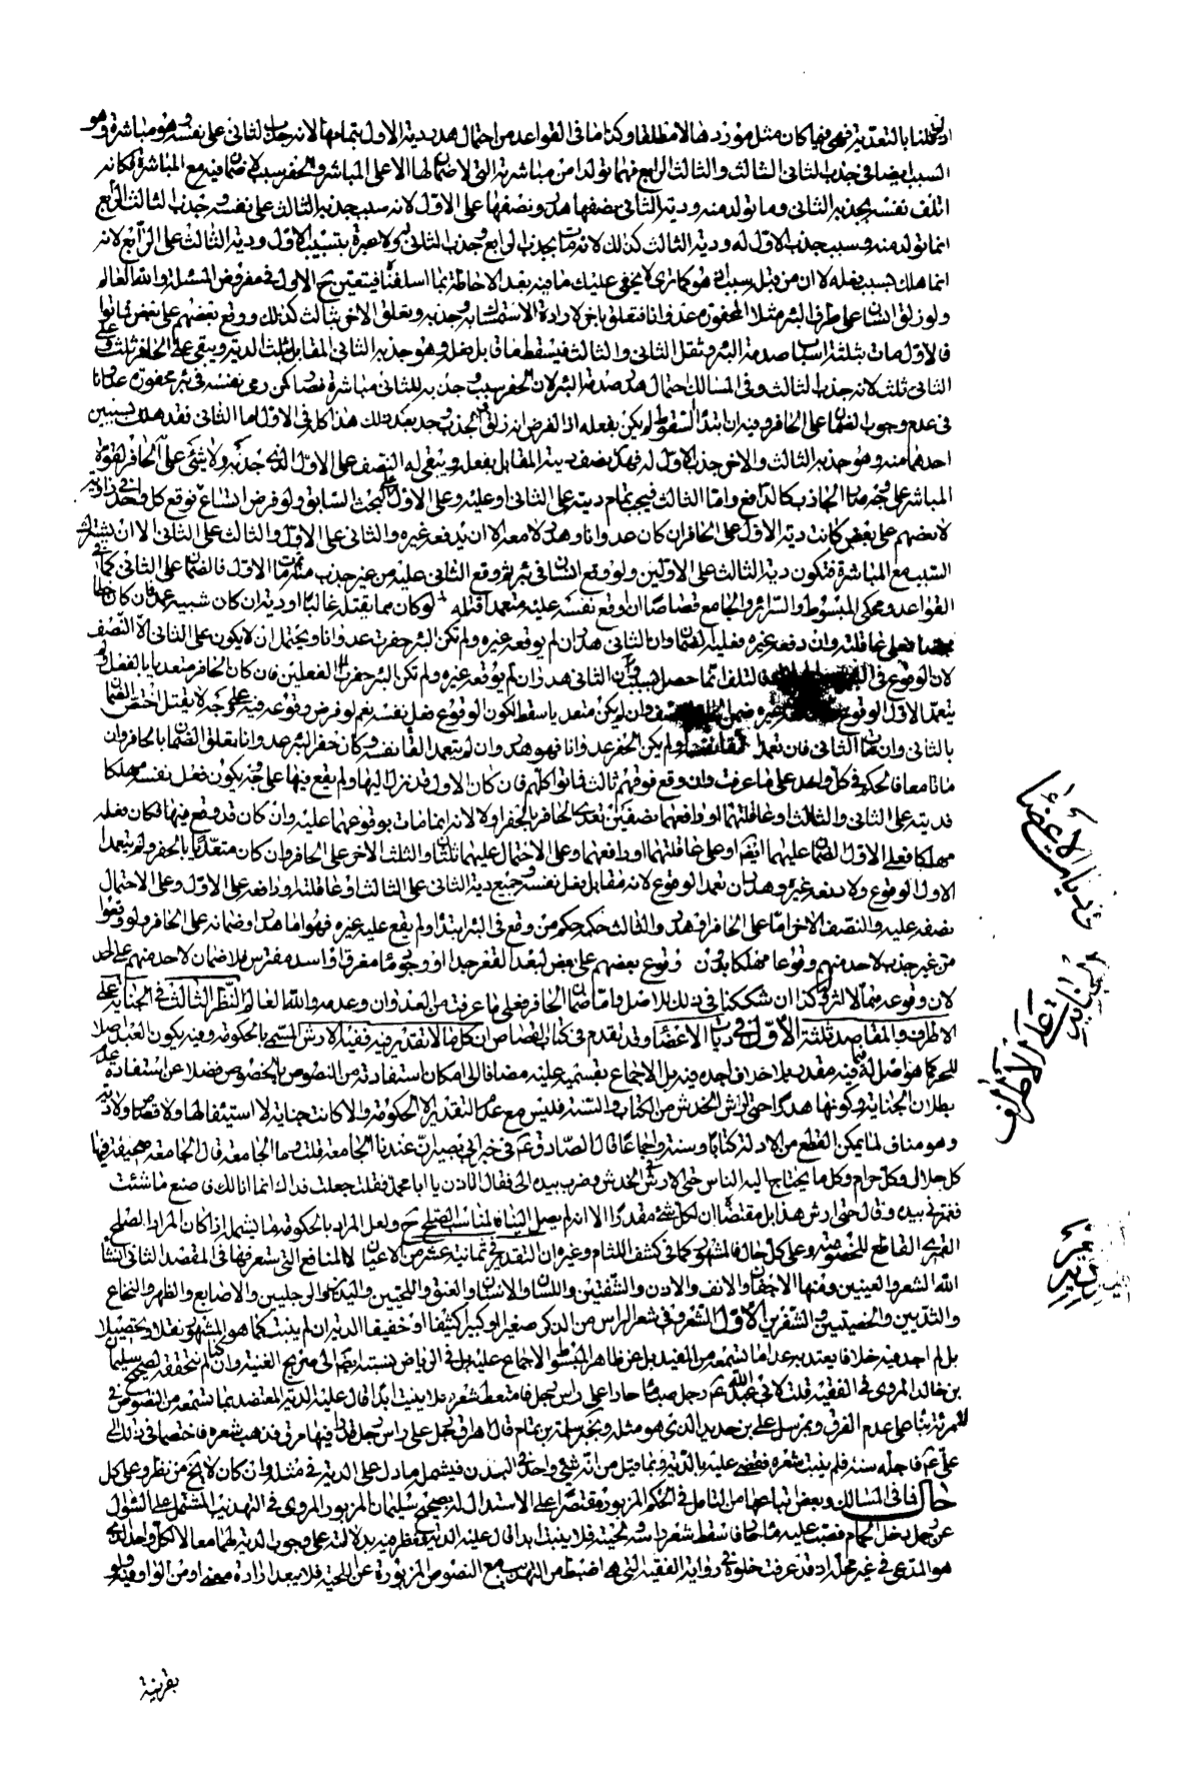 اذا قلنا بالتعدية فهي فيما كان مثل موردها لا مطلقا وكذا ما في القواعد من احتمال هدر دية الاول بتمامها لانه جذب الثاني على نفسه وهو مباشرة وهو
السبب ايضا في جذب الثاني الثالث والثالث الرابع فهما تولدا من مباشرته التي لا ضمان لها الا على المباشر والحفر سبب لا ضمان فيه مع المباشرة فكانه
اتلف نفسه بجذبه الثاني وما تولد منه ودية الثاني نصفها هدر ونصفها على الاول لانه سبب جذبه الثالث على نفسه وجذب الثالث الرابع
انما تولد منه وسبب جذب الاول له ودية الثالث كذلك لانه مات بجذب الرابع وجذب الثاني له ولا عبرة بتسبيب الاول ودية الثالث على الرابع لانه
انما هلك بسبب فعله لا ان من قبل سبب اذ هو كما ترى لا يخفى عليك ما فيه بعد الاحاطة بما اسلفنا فيتعين ح الاول في مفروض المسئلة والله العالم
ولو زلق انسان على طرف البئر مثلا المحفورة عدوانا فتعلق باخر لارادة الاستمساك به وجذبه وتعلق الاخر بثالث كذلك ووقع بعضهم على بعض فماتوا
فالاول مات بثلثة اسباب صدمة البئر وثقل الثاني والثالث فيسقط ما قابل فعله وهو جذبه الثاني المقابل لثلث الدية ويبقى على الحافر ثلث وعلى
الثاني ثلث لانه جذب الثالث وفي المسالك احتمال هدر صدمة البئر لان الحفر سبب وجذبه للثاني مباشرة فصار كمن رمى نفسه في بئر محفورة عدوانا
في عدم وجوب الضمان على الحافر وفيه ان ابتداء السقوط لم يكن بفعله اذ الفرض انه زلق قبل الجذب وجذب بعد ذلك هذا كله في الاول اما الثاني فقد هلك بسببين
احدهما منه وهو جذبه الثالث والاخر جذب الاول له فهدر نصف ديته المقابل بفعله ويبقى له النصف على الاول الذي جذبه ولا شيء على الحافر لقوة
المباشر على وجه صار الجاذب كالدافع واما الثالث فيجب تمام ديته على الثاني او عليه وعلى الاول على البحث السابق ولو فرض اتساع فوقع كل واحد في زاوية
لا بعضهم على بعض كانت دية الاول على الحافر ان كان عدوانا وهدر لا معه الا ان يدفعه غيره والثاني على الاول والثالث على الثاني الا ان يشترك
السبب مع المباشرة فتكون دية الثالث على الاولين ولو وقع انسان في بئر ثم وقع الثاني عليه من غير جذب منه فمات الاول فالضمان على الثاني كما في
القواعد ومحكي المبسوط والسرائر والجامع قصاصا ان اوقع نفسه عليه متعمدا قتله او كان مما يقتله غالبا او دية ان كان شبيه عمد فان كان خطأ
محضا فعلى عاقلته وان دفعه غيره فعليه الضمان وان الثاني هدر ان لم يوقعه غيره ولم تكن البئر حفرت عدوانا ويحتمل ان لا يكون على الثاني الا النصف
لان الوقوع في البئر فالتلف انما حصل بسبب وان الثاني هدر ان لم يوقعه غيره ولم تكن البئر حفرت الفعلين فان كان الحافر متعديا بالفعل ولم
يتعمد الاول الوقوع غيره ضمن النصف وان لم يكن متعديا سقط لكون الوقوع فعل نفسه نعم لو فرض وقوعه فيه على وجه لا يقتل اختص الضمان
بالثاني وان مات الثاني فان تعمد القاء نفسه ولم يكن الحفر عدوانا فهو هدر وان لم يتعمد القاء نفسه وكان حفر البئر عدوانا تعلق الضمان بالحافر وان
ماتا معا فالحكم في كل واحد على ما عرفت وان وقع فوقهم ثالث فماتوا كلهم فان كان الاول قد نزل اليها ولم يقع فيها على وجه يكون فعل نفسه مهلكا
فديته على الثاني والثالث او عاقلتهما او دافعهما نصفين تعدى الحافر بالحفر اولا لانه انما مات بوقوعهما عليه وان كان قد وقع فيها فكان فعله
مهلكا فعلى الاول الضمان عليهما ايضا او على عاقلتهما او دافعهما وعلى الاحتمال عليهما ثلثان والثلث الاخر على الحافر وان كان متعديا بالحفر ولم يتعمد
الاول الوقوع ولا دفعه غيره وهدر ان تعمد الوقوع لانه مقابل بفعل نفسه وجميع دية الثاني على الثالث او عاقلته او دافعه على الاول وعلى الاحتمال
نصفه عليه والنصف الاخر اما على الحافر او هدر والثالث حكمه حكم من وقع في البئر ابتداء او لم يقع عليه غيره فهو اما هدر او ضمانه على الحافر ولو وقعوا
من غير جذب لاحد منهم وقوعا مهلكا بدون وقوع بعضهم على بعض لبعد القعر جدا او وجود ماء مغرق او اسد مفترس فلا ضمان لاحد منهم على احد
لان وقوعه منهما لا اثر له وكذا ان شككنا في ذلك للاصل واما ضمان الحافر فعلى ما عرفت من العدوان وعدمه والله العالم النظر الثالث في الجناية على
الاطراف والمقاصد ثلثة الاول في ديات الاعضاء وقد تقدم في كتاب القصاص ان كل ما لا تقدير فيه ففيه الارش المسمى بالحكومة وفيه يكون العبد اصلا
للحر كما هو اصل له فيما فيه مقدر بلا خلاف اجده فيه بل الاجماع بقسميه عليه مضافا الى امكان استفادته من النصوص بالخصوص فضلا عن استفادة عدم
بطلان الجناية وكونها هدرا حتى ارش الخدش من الكتاب والسنة فليس مع عدم التقدير الا الحكومة والا كانت جناية لا استيفاء لها ولا قصاص ولا دية
وهو مناف لما يمكن القطع من الادلة كتابا وسنة واجماعا قال الصادق ع في خبر ابي بصير ان عندنا الجامعة قلت وما الجامعة قال الجامعة صحيفة فيها
كل حلال وكل حرام وكل ما يحتاج اليه الناس حتى الارش في الخدش وضرب بيده الي فقال اتاذن يا ابا محمد فقلت جعلت فداك انما انا لك فاصنع ما شئت
فغمزني بيده وقال حتى ارش هذا بل مقتضاه ان لكل شيء مقدرا الا انه لم يصل الينا فالمناسب الصلح ح ولعل المراد بالحكومة ما يشمله اذا كان المراد الصلح
القهري القاطع للخصومة وعلى كل حال فالمشهور كما في كشف اللثام وغيره ان التقدير في ثمانية عشر من الاعيان لا المنافع التي ستعرفها في المقصد الثاني انشاء
الله الشعر والعينين ومنها الاجفان والانف والاذن والشفتين واللسان والاسنان والعنق واللحيين واليدين والرجلين والاصابع والظهر والنخاع
والثديين والخصيتين والشفرين الاول الشعر وفي شعر الراس من الذكر صغيرا او كبيرا كثيفا او خفيفا الدية ان لم ينبت كما هو المشهور نقلا وتحصيلا
بل لم اجد فيه خلافا يعتد به عدا ما تسمعه من المفيد بل عن ظاهر المبسوط الاجماع عليه بل في الرياض نسبته ايضا الى صريح الغنية وان كنا لم نتحققه لصحيح سليمان
بن خالد المروي في الفقيه قلت لابي عبد الله ع رجل صب ماء حارا على راس رجل فامتعط شعره فلا ينبت ابدا قال عليه الدية المعتضد بما تسمعه من النصوص في
المرئة بناء على عدم الفرق وبمرسل علي بن حديد الذي هو مثله وبخبر سلمة بن تمام قال اهراق رجل على راس رجل قدرا فيها مرق فذهب شعره فاختصما في ذلك الى
علي ع فاجله سنة فلم ينبت شعره فقضى عليه بالدية وبما قيل من انه شيء واحد في البدن فيشمله ما دل على الدية في مثله وان كان لا يخ من نظر وعلى كل
حال فما في المسالك وبعض اتباعها من التامل في الحكم المزبور مقتصرا على الاستدلال له بصحيح سليمان المزبور المروي في التهذيب المشتمل على السؤال
عن رجل دخل الحمام فصب عليه ماء حار فاسقط شعر راسه ولحيته فلا ينبت ابدا قال عليه الدية فنظر فيه بدلالته على وجوب الدية لهما معا لا لكل واحد الذي
هو المدعى في غير محله اذ قد عرفت خلوه في رواية الفقيه التي هي اضبط من التهذيب مع النصوص المزبورة عن اللحية فلا يبعد ارادة معنى او من الواو فيه ولو
في الجناية على الاطراف
في ديات الاعضاء
بقرينة